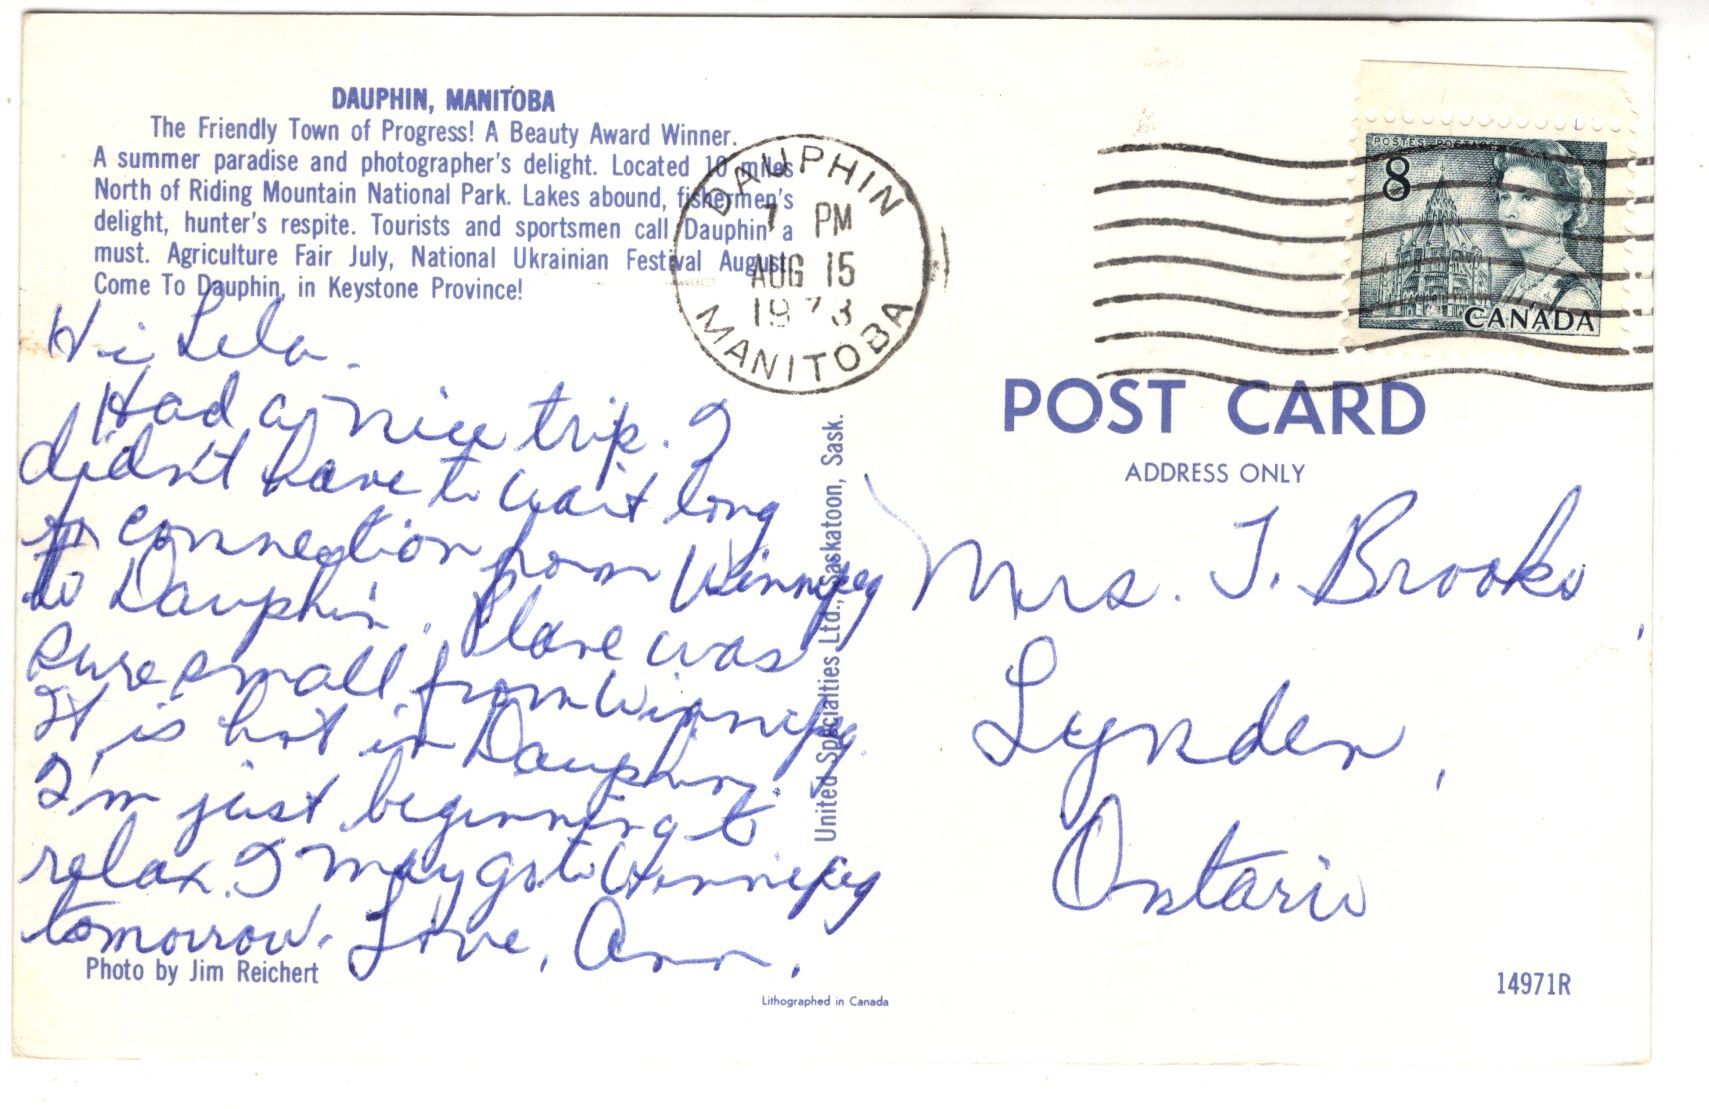 DAUPHIN, MANITOBA
The Friendly Town of Progress! A Beauty Award Winner.
A summer paradise and photographer's delight. Located 10 miles
North of Riding Mountain National Park. Lakes abound, fishermen's
delight, hunter's respite. Tourists and sportsmen call Dauphin a
must. Agriculture Fair July, National Ukrainian Festival August.
Come To Dauphin, in Keystone Province!
Hi Lela.
Had a nice trip. I
didn't have to wait long
for connection from Winnipeg
to Dauphin. Plane was
sure small from Winnipeg.
It is hot in Dauphin.
I'm just beginning to
relax. I may go to Winnipeg
tomorrow. Love, Ann.
Photo by Jim Reichert
Lithographed in Canada
United Specialties Ltd., Saskatoon, Sask.
DAUPHIN
7 PM
AUG 15
1973
MANITOBA
POSTES POSTAGE
8
CANADA
POST CARD
ADDRESS ONLY
Mrs. T. Brooks,
Lynden,
Ontario
14971R